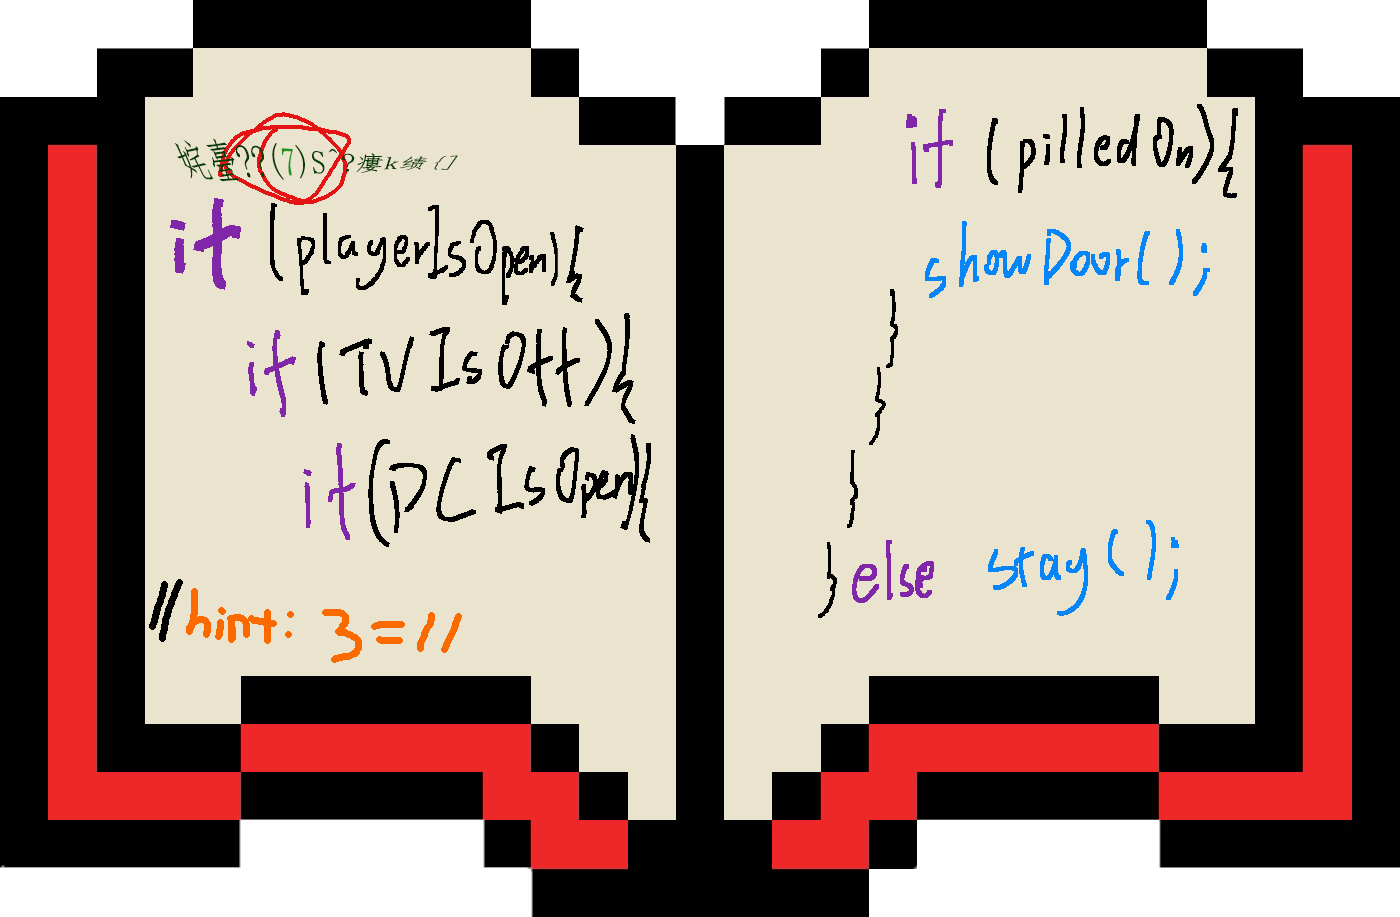 姹臺??(7)S^?瘻k绩{]
if (playerIsOpen){
if (TVIsOff){
if(PCIsOpen){
//hint: 3=11
if (pilledOn){
showDoor();
}
}
}
} else stay();